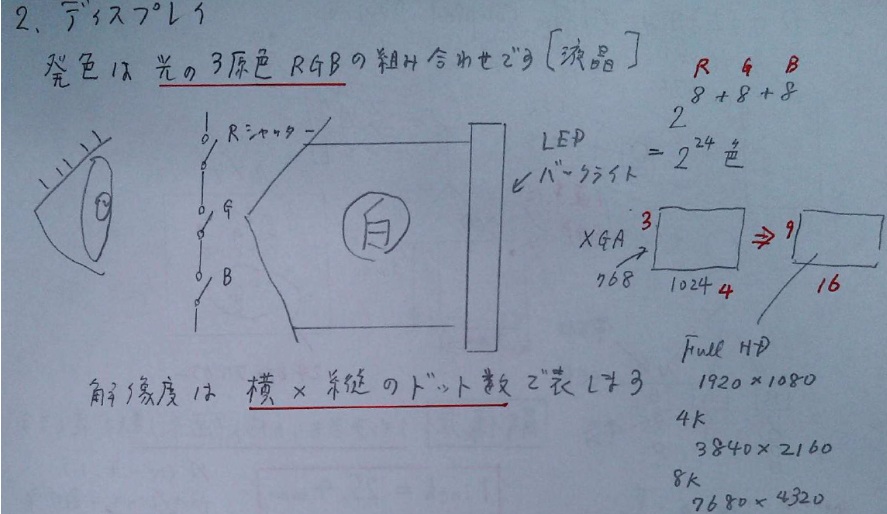 2. ディスプレイ
発色は 光の3原色 RGBの組み合わせです[液晶]
R G B
2^8+8+8
= 2^24色
Rシャッター
G
B
白
LED
バックライト
XGA
768
3
1024
4
⇒
9
16
Full HD
1920×1080
4K
3840×2160
8K
7680×4320
解像度は 横×縦のドット数で表します